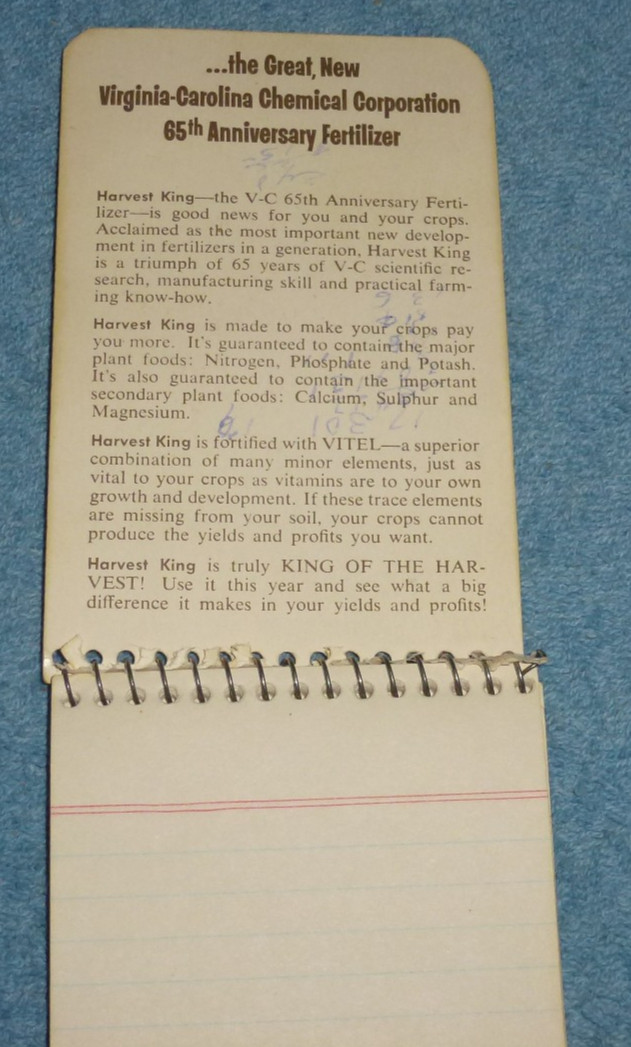 ...the Great, New
Virginia-Carolina Chemical Corporation
65th Anniversary Fertilizer
Harvest King—the V-C 65th Anniversary Ferti-
lizer—is good news for you and your crops.
Acclaimed as the most important new develop-
ment in fertilizers in a generation, Harvest King
is a triumph of 65 years of V-C scientific re-
search, manufacturing skill and practical farm-
ing know-how.
Harvest King is made to make your crops pay
you more. It's guaranteed to contain the major
plant foods: Nitrogen, Phosphate and Potash.
It's also guaranteed to contain the important
secondary plant foods: Calcium, Sulphur and
Magnesium.
Harvest King is fortified with VITEL—a superior
combination of many minor elements, just as
vital to your crops as vitamins are to your own
growth and development. If these trace elements
are missing from your soil, your crops cannot
produce the yields and profits you want.
Harvest King is truly KING OF THE HAR-
VEST! Use it this year and see what a big
difference it makes in your yields and profits!